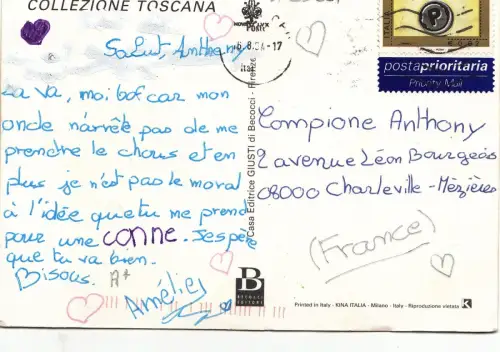 COLLEZIONE TOSCANA
Salut, Anthony
ça va, moi bof car mon
oncle n'arrête pas de me
prendre le chous et en
plus je n'est pas le moral
à l'idée que tu me prend
pour une conne. J'espère
que tu va bien.
Bisous. A+
Amélie
Casa Editrice GIUSTI di Becocci - Firenze
B
BECOCCI
EDITORE
.8. -17
ITALIA
postaprioritaria
Priority Mail
Compione Anthony
2 avenue Léon Bourgeois
08000 Charleville-Mézières
(France)
Printed in Italy - KINA ITALIA - Milano - Italy - Riproduzione vietata
K